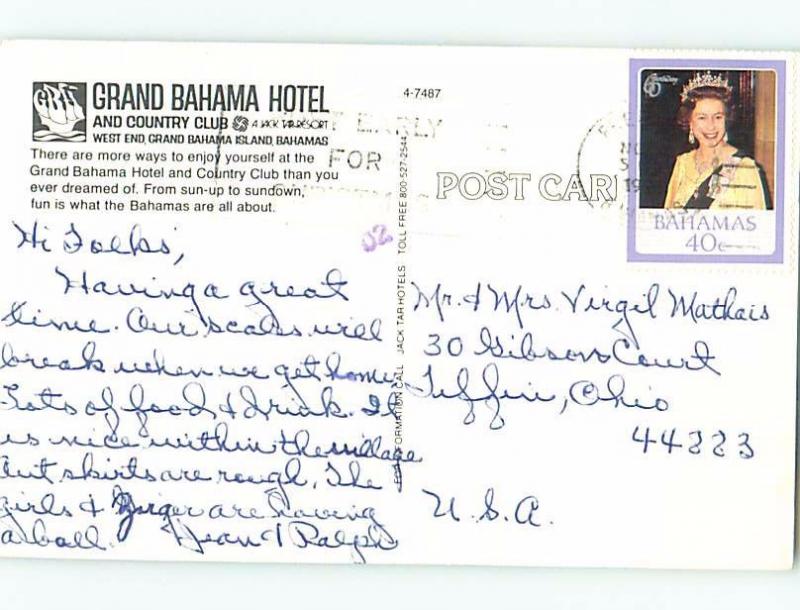 GRAND BAHAMA HOTEL
AND COUNTRY CLUB A JACK TAR RESORT
WEST END, GRAND BAHAMA ISLAND, BAHAMAS
There are more ways to enjoy yourself at the
Grand Bahama Hotel and Country Club than you
ever dreamed of. From sun-up to sundown,
fun is what the Bahamas are all about.
4-7487
EARLY
FOR
POST CARD
BAHAMAS
40c
02
FOR INFORMATION CALL JACK TAR HOTELS TOLL FREE 800-527-2544
Hi Folks,
Having a great
time. Our scales will
break when we get home.
Lots of food & drink. It
is nice within the village
but skirts are rough. The
girls & are having
a ball. Jean & Ralph
Mr. & Mrs. Virgil Mathais
30 Gibson Court
Tiffin, Ohio
44883
U.S.A.